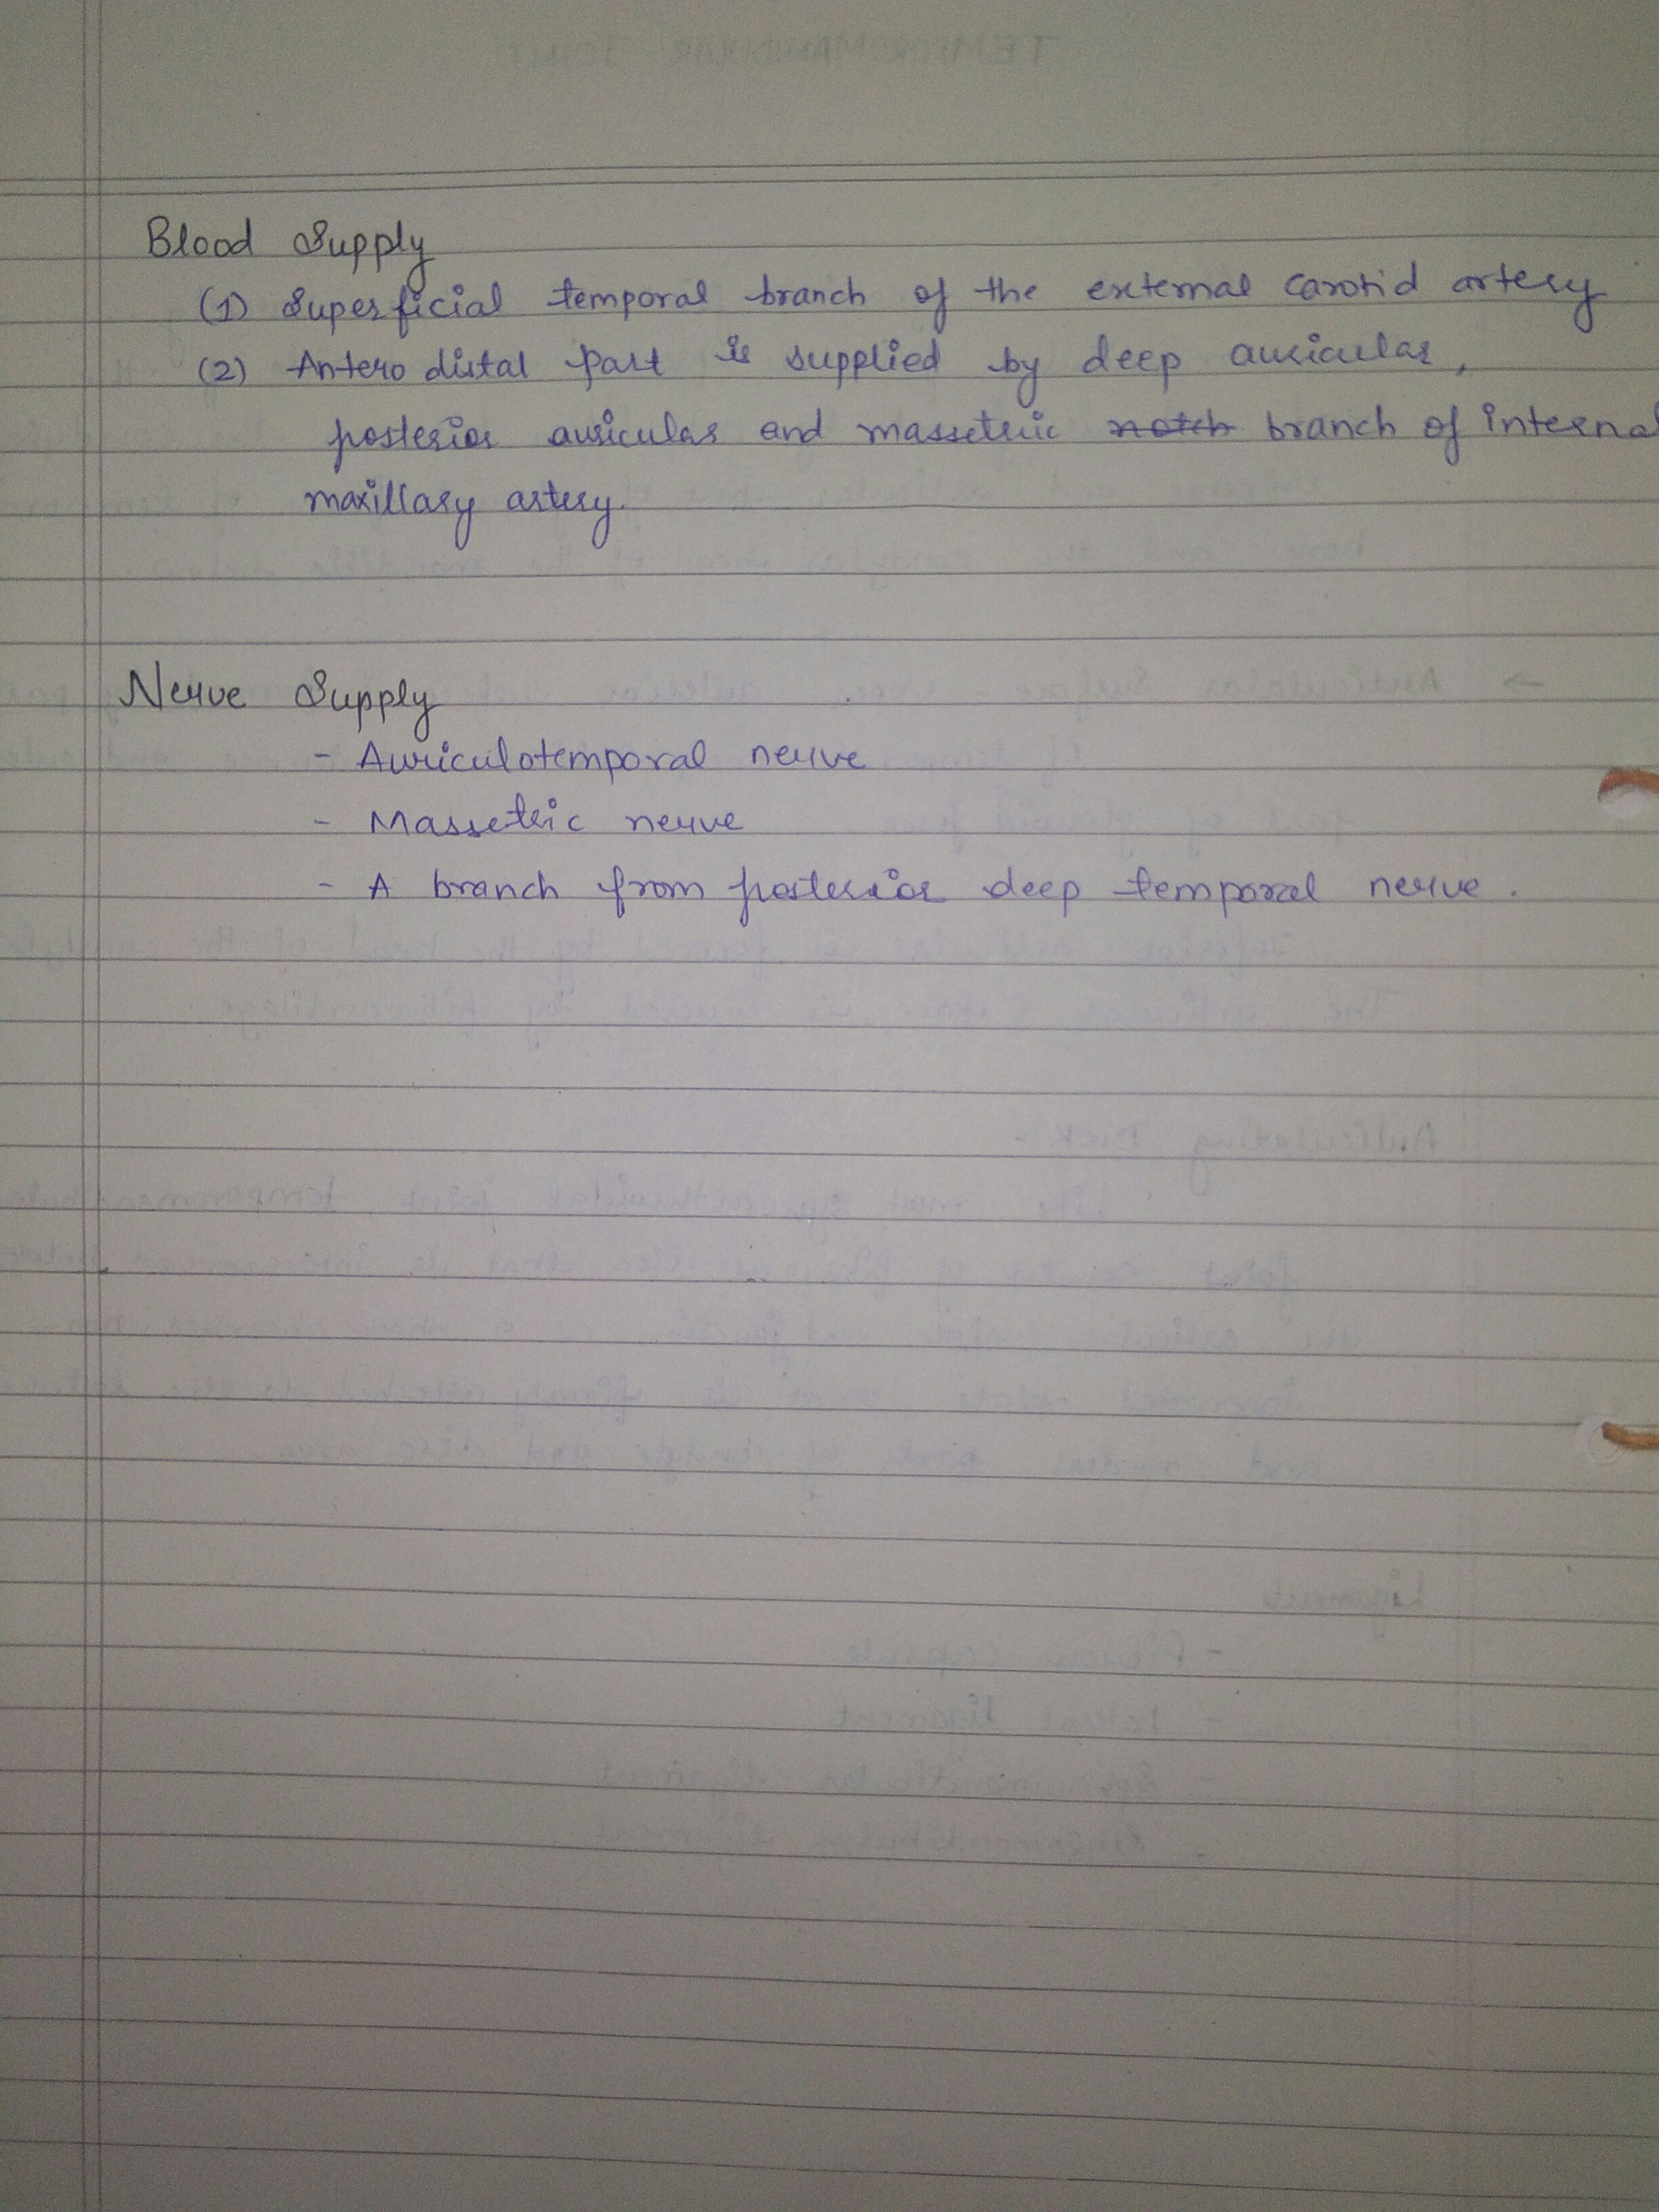 Blood Supply
(1) Superficial temporal branch of the external carotid artery
(2) Antero distal part is supplied by deep auricular,
posterior auricular and massetric notch branch of internal
maxillary artery.
Nerve Supply
- Auriculotemporal nerve
- Massetric nerve
- A branch from posterior deep temporal nerve.